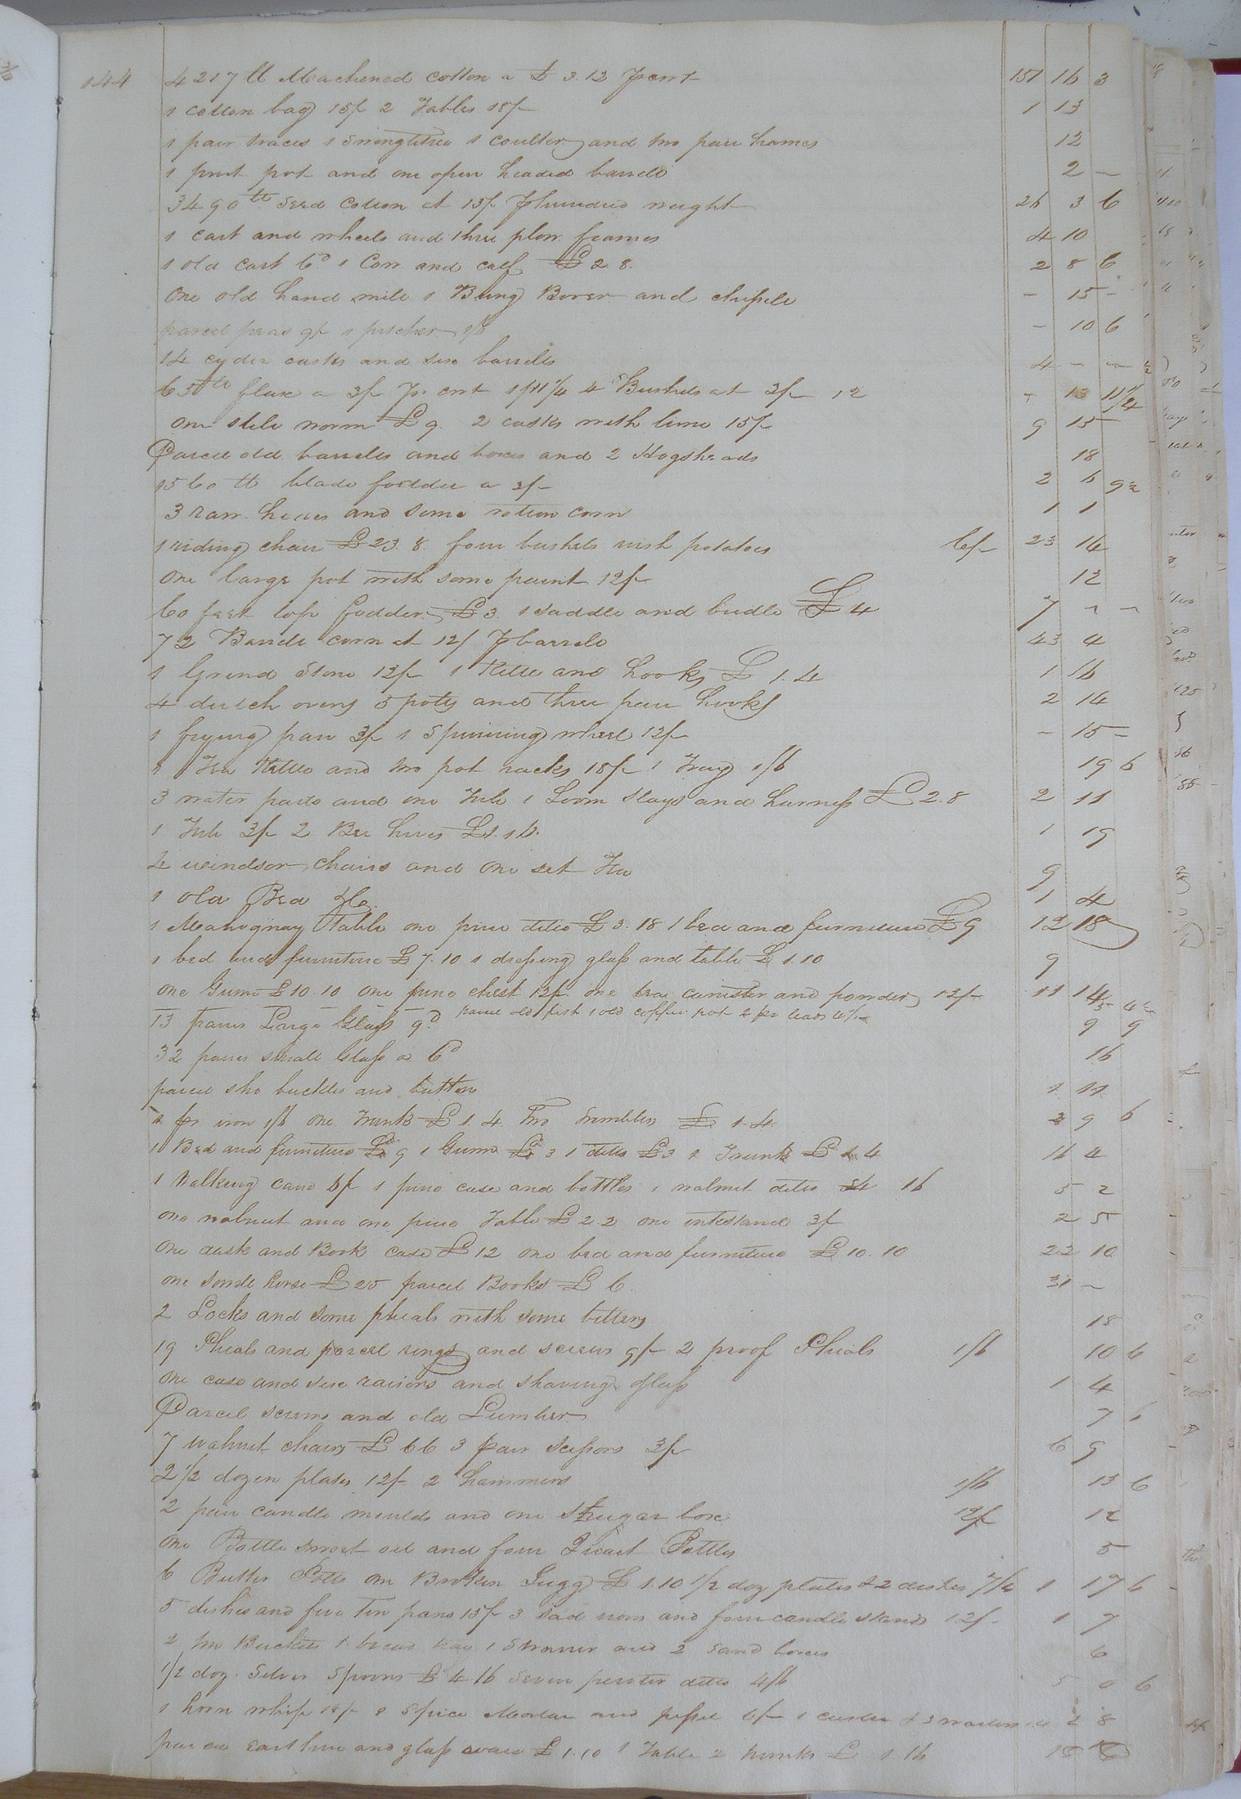 144 4217 lb Meachened cotton a £ 3.12 p cent 151 16 3
1 cotton bag 15/ 2 Tables 18/ 1 13
1 pair traces 1 Swingletree 1 coulter and two pair hames 12
1 pot and one open headed barrell 2 —
3490 lb Seed Cotton at 15/ p hundred weight 26 3 6
1 cart and wheels and three plow frames 4 10
1 old cart 6d 1 Cow and calf £ 2 8. 2 8 6
One old hand mill 1 Bung Borer and chissele — 15 —
parcel peas 9/ 1 pitcher 1/6 — 10 6
14 cyder casks and six barrells 4 — —
65 lb flax a 3/ p. cwt 1/11 1/4 4 Bushels at 3/ 12 — 13 11 1/4
One still worm £ 9. 2 casks with lime 15/ 9 15
Parcel old barrels and boxes and 2 Hogsheads 18
1560 lb blade fodder a 3/ 2 6 9
3 raw hides and some rotten corn 1 1
1 riding chair £ 23.8. four bushels irish potatoes 6/ 23 14
One large pot with some paint 12/ 12
60 feet top fodder £ 3 1 saddle and bridle £ 4 7 — —
72 Barrels corn at 12/ p barrele 43 4
1 Grind Stone 12/ 1 Kettle and hooks £ 1.4 1 16
4 dutch ovens 5 potts and three pair hooks 2 14
1 frying pan 3/ 1 Spinning wheel 12/ — 15 —
1 Tea Kettle and two pot racks 18/ 1 Tray 1/6 19 6
3 water pails and one Tub 1 Loom Slays and harness £ 2.8 2 11
1 Tub 3/ 2 Bee hives £ 1.16. 1 19
windsor chairs and one set Tea 9
1 old Bed &c. 1 4
1 Mahogany Table one pine ditto £ 3.18 1 bed and furniture £ 9 12 18
1 bed and furniture £ 7.10 1 dressing glass and table £ 1.10 9
One Gun £ 10.10 one pine chest 12/ one tea canister and powder 12/ 11 14
13 panes Large Glass 9d 1 old copper pot 9 9
32 panes small Glass a 6d 16
parcel sho buckles and button 1 11
iron 1/6 One Trunk £ 1.4 Two £ 1.4. 2 9 6
1 Bed and furniture £ 9 1 Gun £ 3 1 ditto £ 3 1 Trunk £ 1.4 16 4
1 Walking cane 6/ 1 pine case and bottles 1 walnut ditto £4 16 5 2
one walnut and one pine Table £ 2 2 one inkstand 3/ 2 5
One desk and Book case £ 12 one bed and furniture £ 10.10 22 10
one horse £ 25 parcel Books £ 6. 31 —
2 Locks and some phials with some bitters 18
19 Phials and parcel rings and screws 9/ 2 proof Phials 1/6 10 6
One case and six raisors and shaving glass 1 4
Parcel screws and old Lumber 7 6
7 walnut chairs £ 6 6 3 pair scissors 3/ 6 9
2 1/2 dozen plates 12/ 2 hammers 1/6 13 6
2 pair candle moulds and one shugar box 12/ 12
One Bottle sweet oil and four Quart Bottles 5
6 Butter Potts one Broken Jugg £ 1.10 1/2 doz plates & 2 dishes 7/6 1 17 6
5 dishes and five tin pans 15/ 3 sad irons and four candle stands 12/ 1 7
2 Buckets 1 bread tray 1 Strainer and 2 sand boxes 6
1/2 doz. Silver Spoons £ 4 16 Seven pewter ditto 4/6 5 0 6
1 horn whip 18/ 1 Spice Mortar and pessel 6/ 1 2 8
parcel earthen and glass ware £ 1.10 1 Table 2 trunks £ 1.16